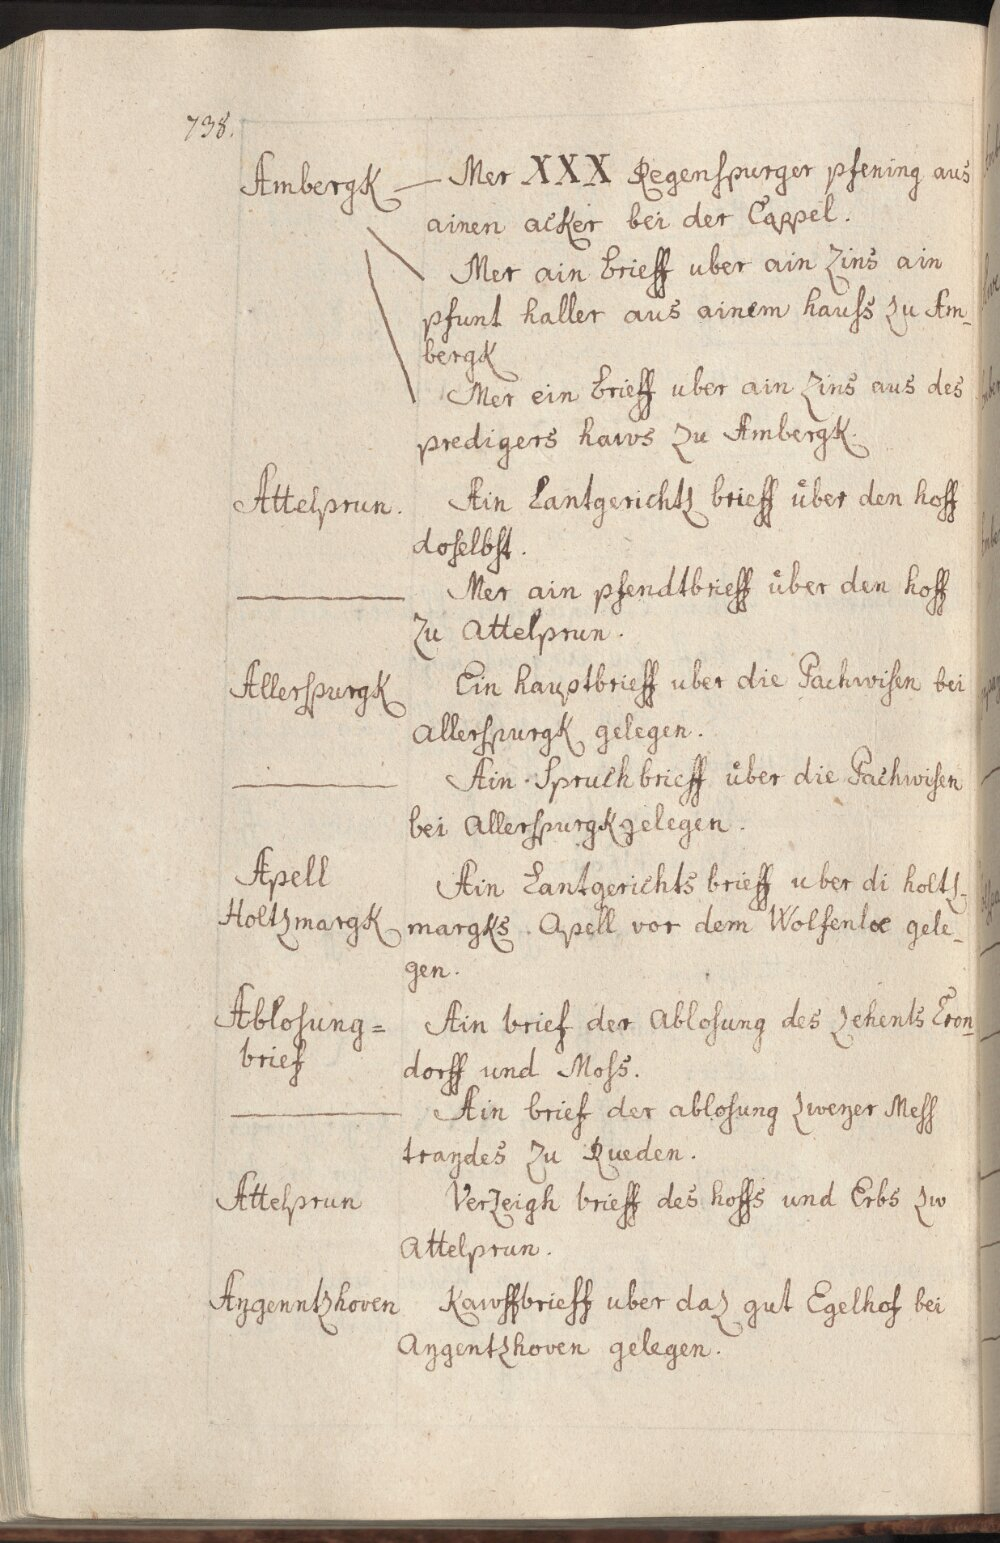 738.
Ambergk — Mer XXX Regenspurger pfening aus
ainen acker bei der Cappel.
Mer ain brieff uber ain Zins ain
pfunt haller aus ainem hauss zu Am-
bergk
Mer ein brieff uber ain Zins aus des
predigers haws zu Ambergk.
Attelprun. Ain Lantgerichtz brieff über den hoff
doselbst.
Mer ain pfendtbrieff über den hoff
Zu Attelprun.
Allerspurgk Ein hauptbrieff uber die Pachwisen bei
Allerspurgk gelegen.
Ain Spruchbrieff über die Pachwisen
bei Allerspurgk gelegen.
Apell Ain Lantgerichts brieff uber di holtz-
Holtzmargk margks. Apell vor dem Wolfenloe gele-
gen.
Ablosung= Ain brief der Ablosung des zehents Cron-
brief dorff und Moss.
Ain brief der ablosung zweyer Mess
traydes Zu Rueden.
Attelprun VerZeigh brieff des hoffs und Erbs zw
Attelprun.
Aygenntzhoven Kawffbrieff uber daz gut Egelhof bei
Aygentzhoven gelegen.